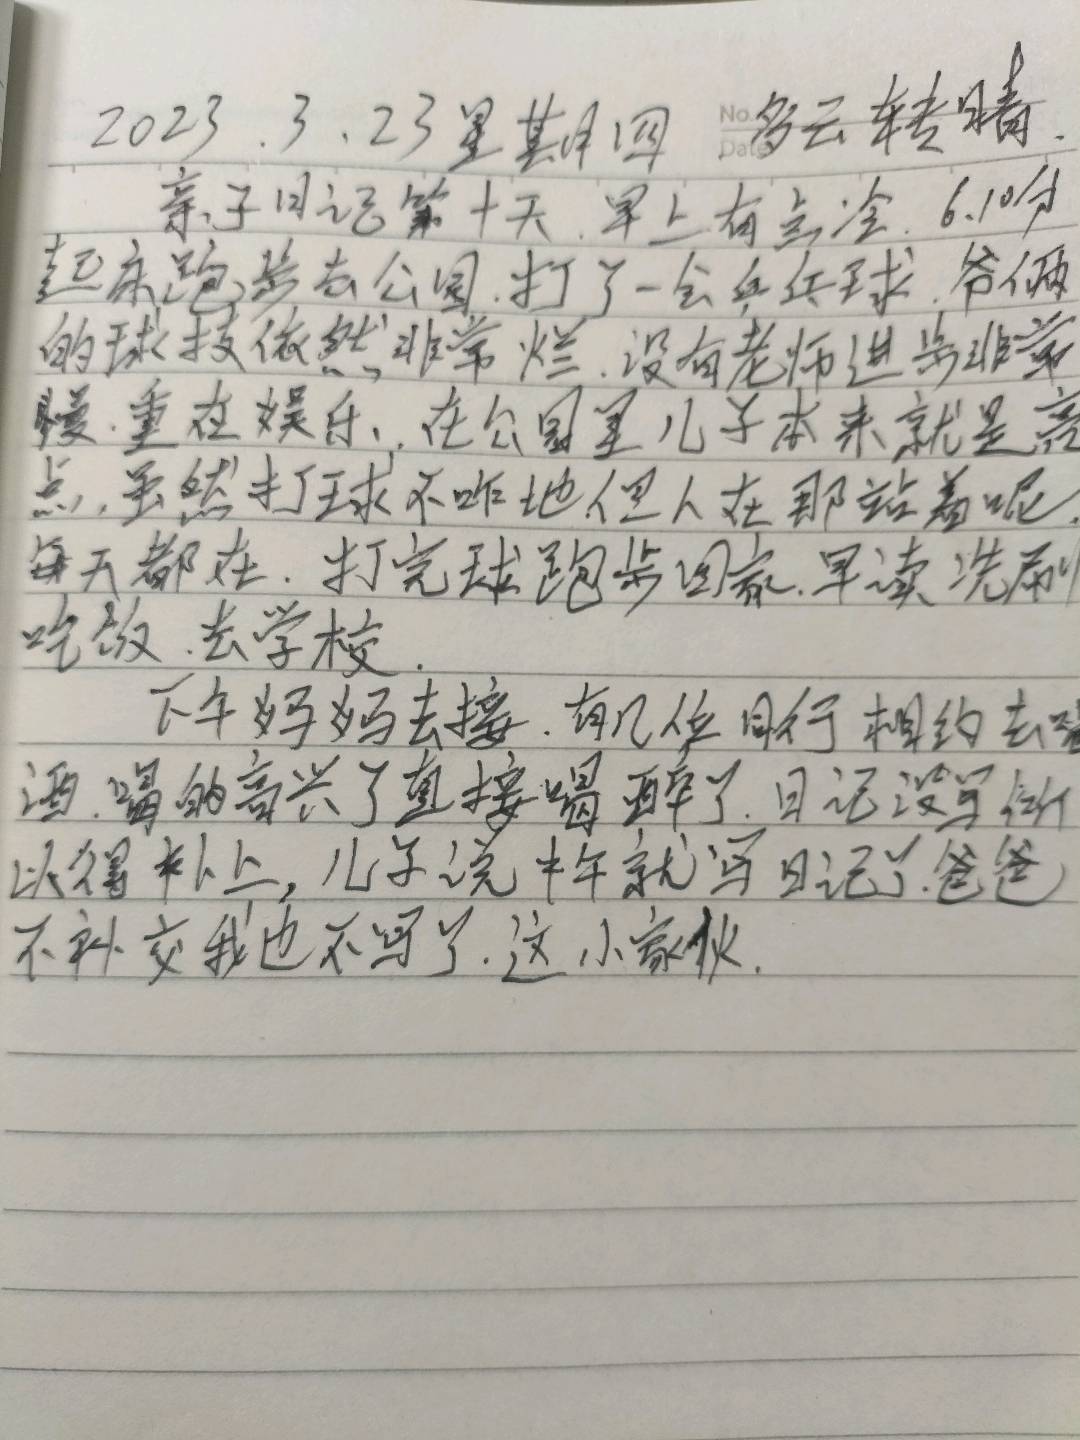 No.
Date
2023.3.23星期四 多云转晴.
亲子日记第十天.早上有点冷.6.10分
起床跑步去公园.打了一会乒乓球.爷俩
的球技依然非常烂.没有老师进步非常
慢.重在娱乐,.在公园里儿子本来就是亮
点,虽然打球不咋地.但人在那站着呢.
每天都在.打完球跑步回家.早读洗刷
吃饭.去学校.
下午妈妈去接.有几位同行相约去喝
酒.喝的高兴了直接喝醉了.日记没写所
以得补上,儿子说中午就写日记了.爸爸
不补交我也不写了.这小家伙.